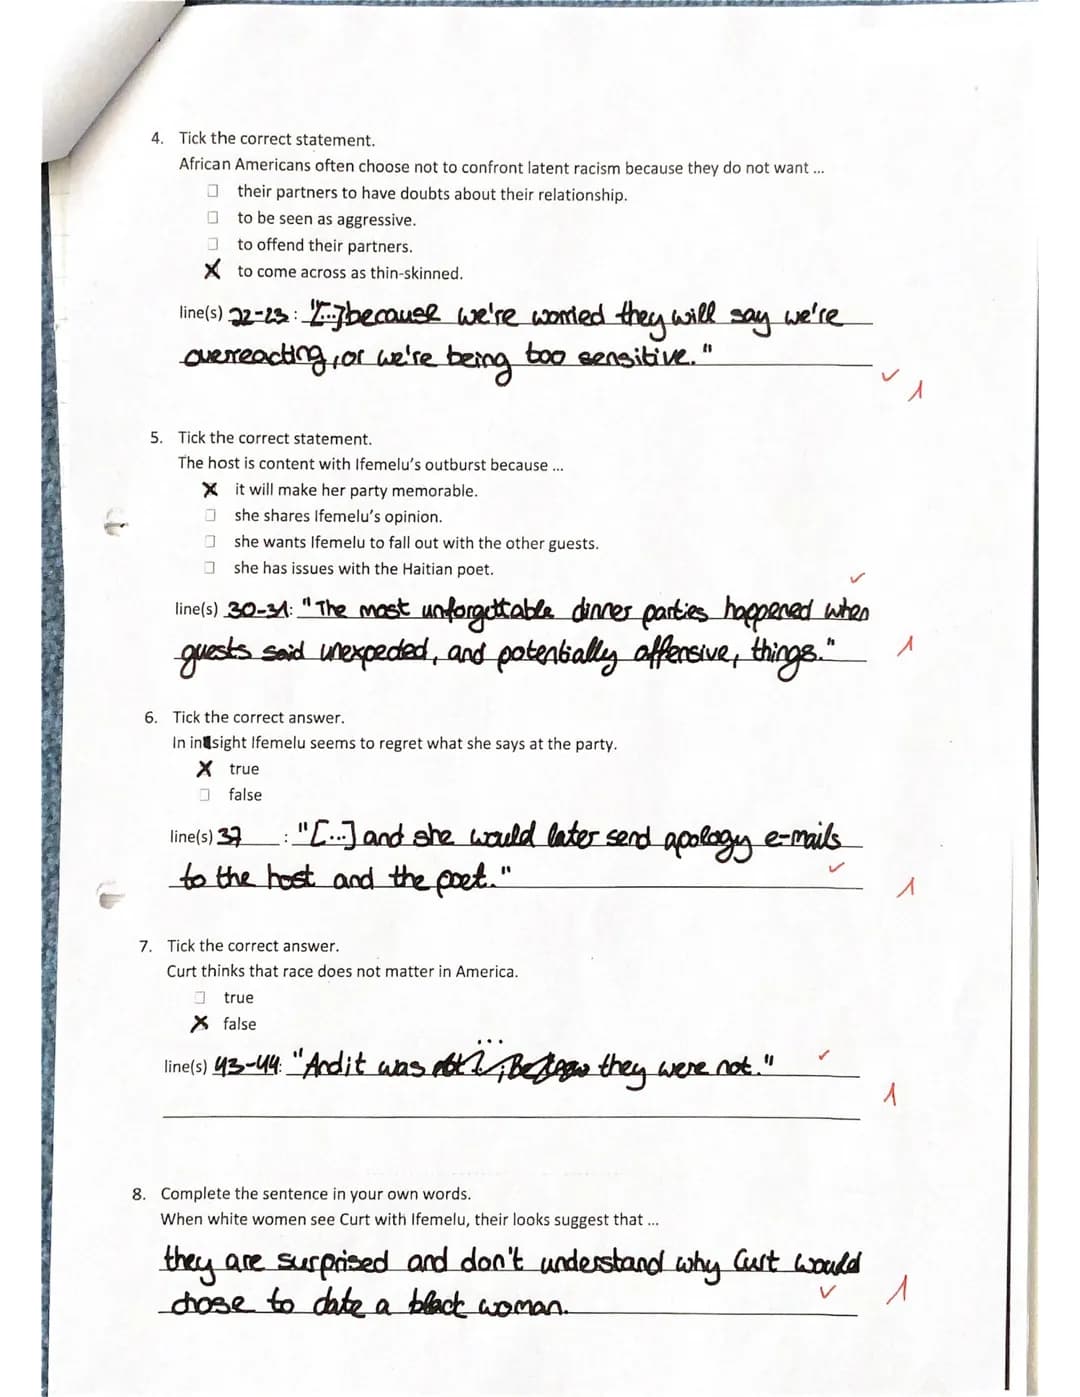 4. Tick the correct statement.
African Americans often choose not to confront latent racism because they do not want ...
☐ their partners to have doubts about their relationship.
☐ to be seen as aggressive.
☐ to offend their partners.
X to come across as thin-skinned.
line(s) 22-23: "[...] because we're worried they will say we're
overreacting, or we're being too sensitive."
✓ 1
5. Tick the correct statement.
The host is content with Ifemelu's outburst because ...
X it will make her party memorable.
☐ she shares Ifemelu's opinion.
☐ she wants Ifemelu to fall out with the other guests.
☐ she has issues with the Haitian poet.
✓
line(s) 30-31: "The most unforgettable dinner parties happened when
guests said unexpected, and potentially offensive, things." 1
6. Tick the correct answer.
In insight Ifemelu seems to regret what she says at the party.
X true
☐ false
line(s) 37 : "[...] and she would later send apology e-mails
to the host and the poet." ✓ 1
7. Tick the correct answer.
Curt thinks that race does not matter in America.
☐ true
X false
line(s) 43-44: "And it was ... they were not." ✓
1
8. Complete the sentence in your own words.
When white women see Curt with Ifemelu, their looks suggest that ...
they are surprised and don't understand why Curt would
chose to date a black woman. ✓ 1